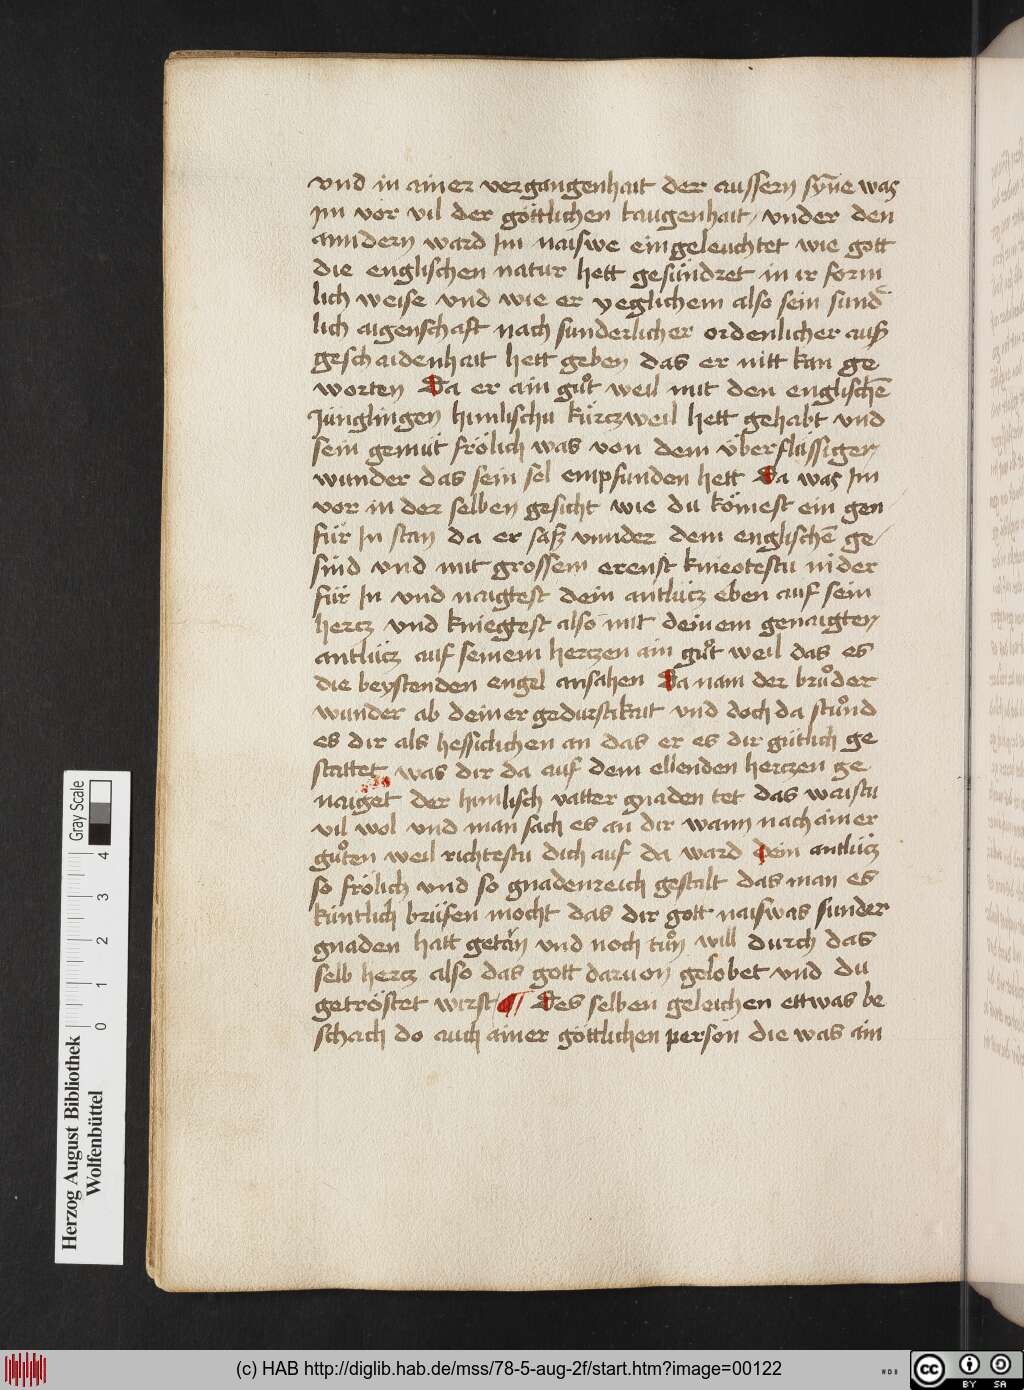 vnd in ainer vergangenhait der aussern sÿne was
jm vor vil der göttlichen taugenhait / vnder den
anndern ward Im naiswe eingeleuchtet wie gott
die englischen natur hett gesündret in ir form
lich weise vnd wie er yeglichem also sein sund̄
lich aigenschaft nach sunderlicher ordenlicher auß
geschaidenhait hett geben das er nitt kan ge
worten Da er ain gůt weil mit den englischē
Jünglingen himlischu kürczweil hett gehabt vnd
sein gemüt frölich was von dem überflüssigen
wunder das sein sel empfunden hett Da was Im
vor in der selben gesicht wie du kömest ein gen
für In stan da er saß vnnder dem englischē ge-
sind vnd mit grossem erenst knieotestu nider
für In vnd naigtest dein antlücz eben auf sein
hercz vnd kniegtest also mit deinem genaigten
antlücz auf seinem herczen ain gůt weil das es
die beystenden engel ansahen Da nam der brůder
wunder ab deiner gedurstikait vnd doch da stůnd
es dir als hessidichen an das er es dir gütlich ge
stattet was dir da auf dem ellenden herczen ge
naiget der himlisch vatter gnaden tet das waistu
vil wol vnd man sach es an dir wann nach ainer
gůten weil richtestu dich auf da ward dein antlücz
so frölich vnd so gnadenreich gestalt das man es
küntlich brüfen mocht das dir gott naiswas sunder
gnaden hatt getän vnd noch tůn will durch das
selb hercz also das gott daruon gelobet vnd du
getröstet wirst ¶ Des selben geleichen ettwas be
schach do auch ainer göttlichen person die was ain
Gray Scale
4
3
2
1
0
Herzog August Bibliothek
Wolfenbüttel
(c) HAB http://diglib.hab.de/mss/78-5-aug-2f/start.htm?image=00122
WDB
cc BY SA